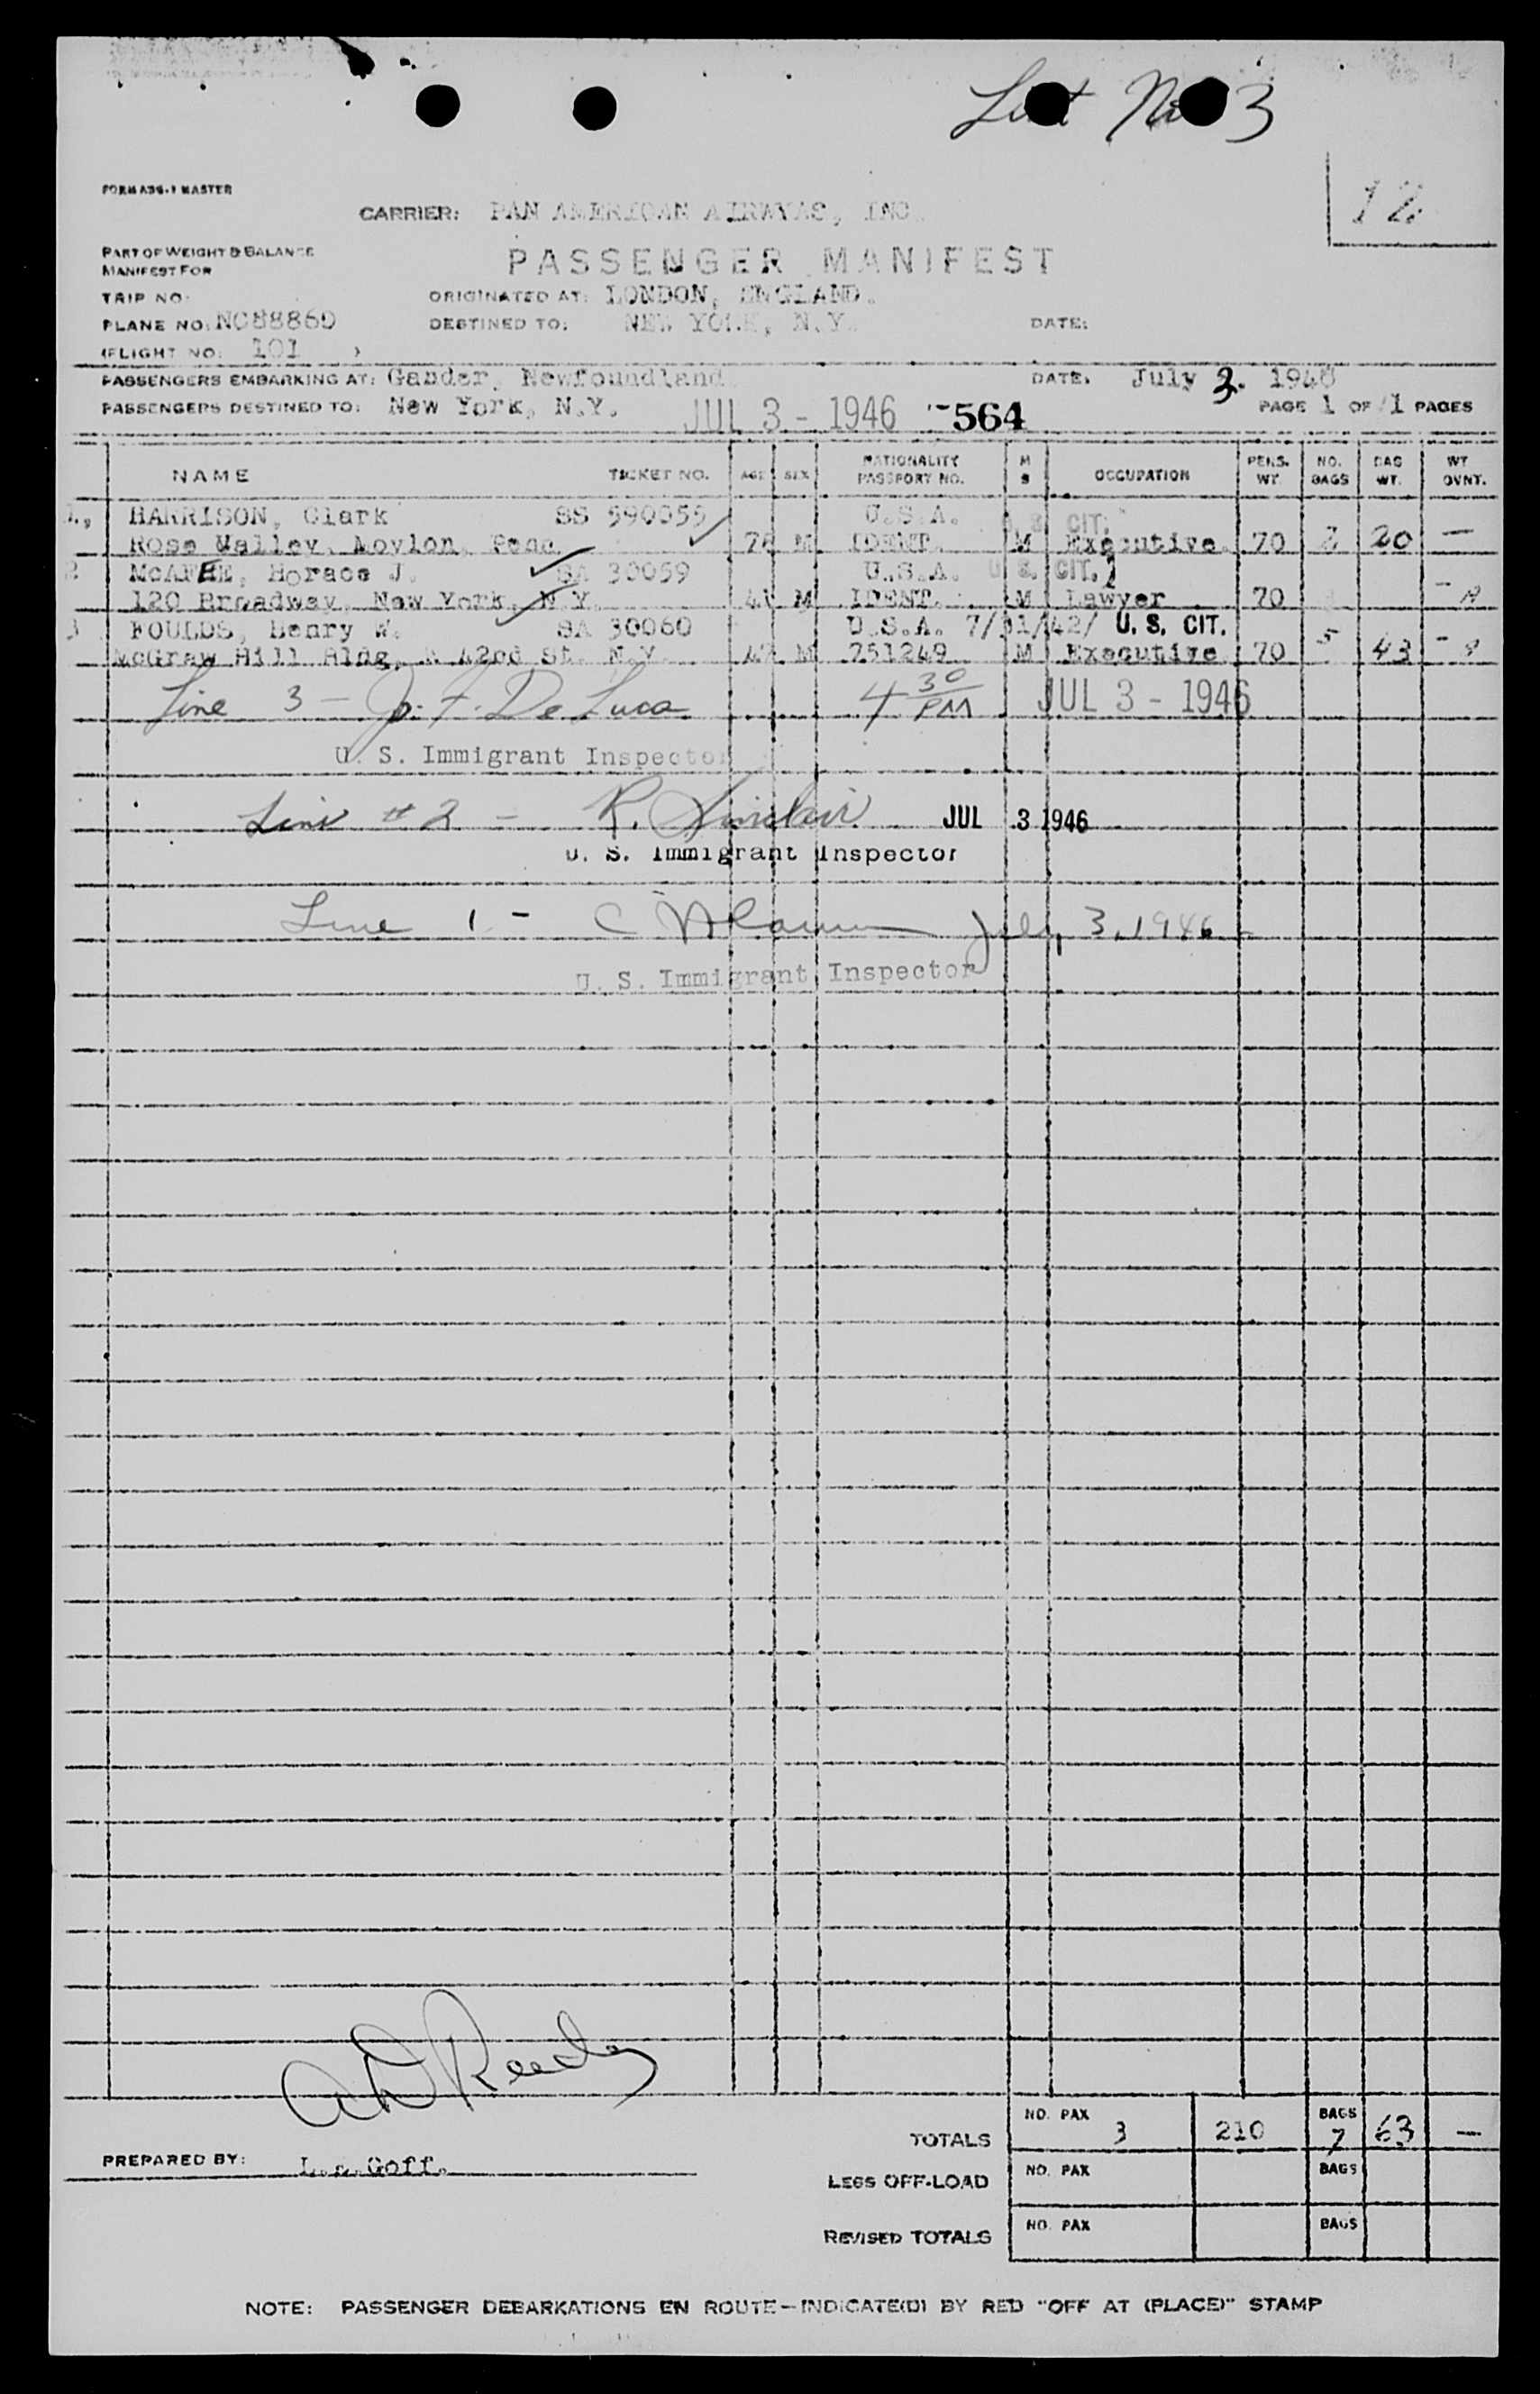 List No 3
FORM A36-1 MASTER
12
CARRIER: PAN AMERICAN AIRWAYS, INC.
PART OF WEIGHT & BALANCE
MANIFEST FOR
PASSENGER MANIFEST
TRIP NO:
ORIGINATED AT: LONDON, ENGLAND.
PLANE NO: NC88860
DESTINED TO: NEW YORK, N.Y.
DATE:
(FLIGHT NO: 101 )
PASSENGERS EMBARKING AT: Gander, Newfoundland
DATE: July 3. 1946
PASSENGERS DESTINED TO: New York, N.Y.
JUL 3 - 1946 564
PAGE 1 OF 1 PAGES
NAME TICKET NO. AGE SEX NATIONALITY PASSPORT NO. M S OCCUPATION PERS. WT. NO. BAGS BAG WT. WT OVNT.
1. HARRISON, Clark SS 590055 U.S.A. U.S. CIT.
Rose Valley, Moylon, Penn. M IDENT. M Executive 70 2 20 —
2 McAFEE, Horace J. SA 30059 U.S.A. U.S. CIT.
120 Broadway, New York, N.Y. 41 M IDENT. M Lawyer 70 -
3 FOULDS, Henry W. SA 30060 U.S.A. 7/31/42/ U. S. CIT.
McGraw Hill Bldg, W 42nd St. N.Y. M 751249 M Executive 70 5 43 -
Line 3 - De Luca 4 30 PM JUL 3 - 1946
U. S. Immigrant Inspector
Line # 2 - R. Sinclair JUL 3 1946
U. S. Immigrant Inspector
Line 1 - C July 3, 1946
U. S. Immigrant Inspector
NO. PAX 3 210 BAGS 7 63 —
TOTALS
PREPARED BY: Goff.
NO. PAX BAGS
LESS OFF-LOAD
NO. PAX BAGS
REVISED TOTALS
NOTE: PASSENGER DEBARKATIONS EN ROUTE—INDICATE(D) BY RED "OFF AT (PLACE)" STAMP